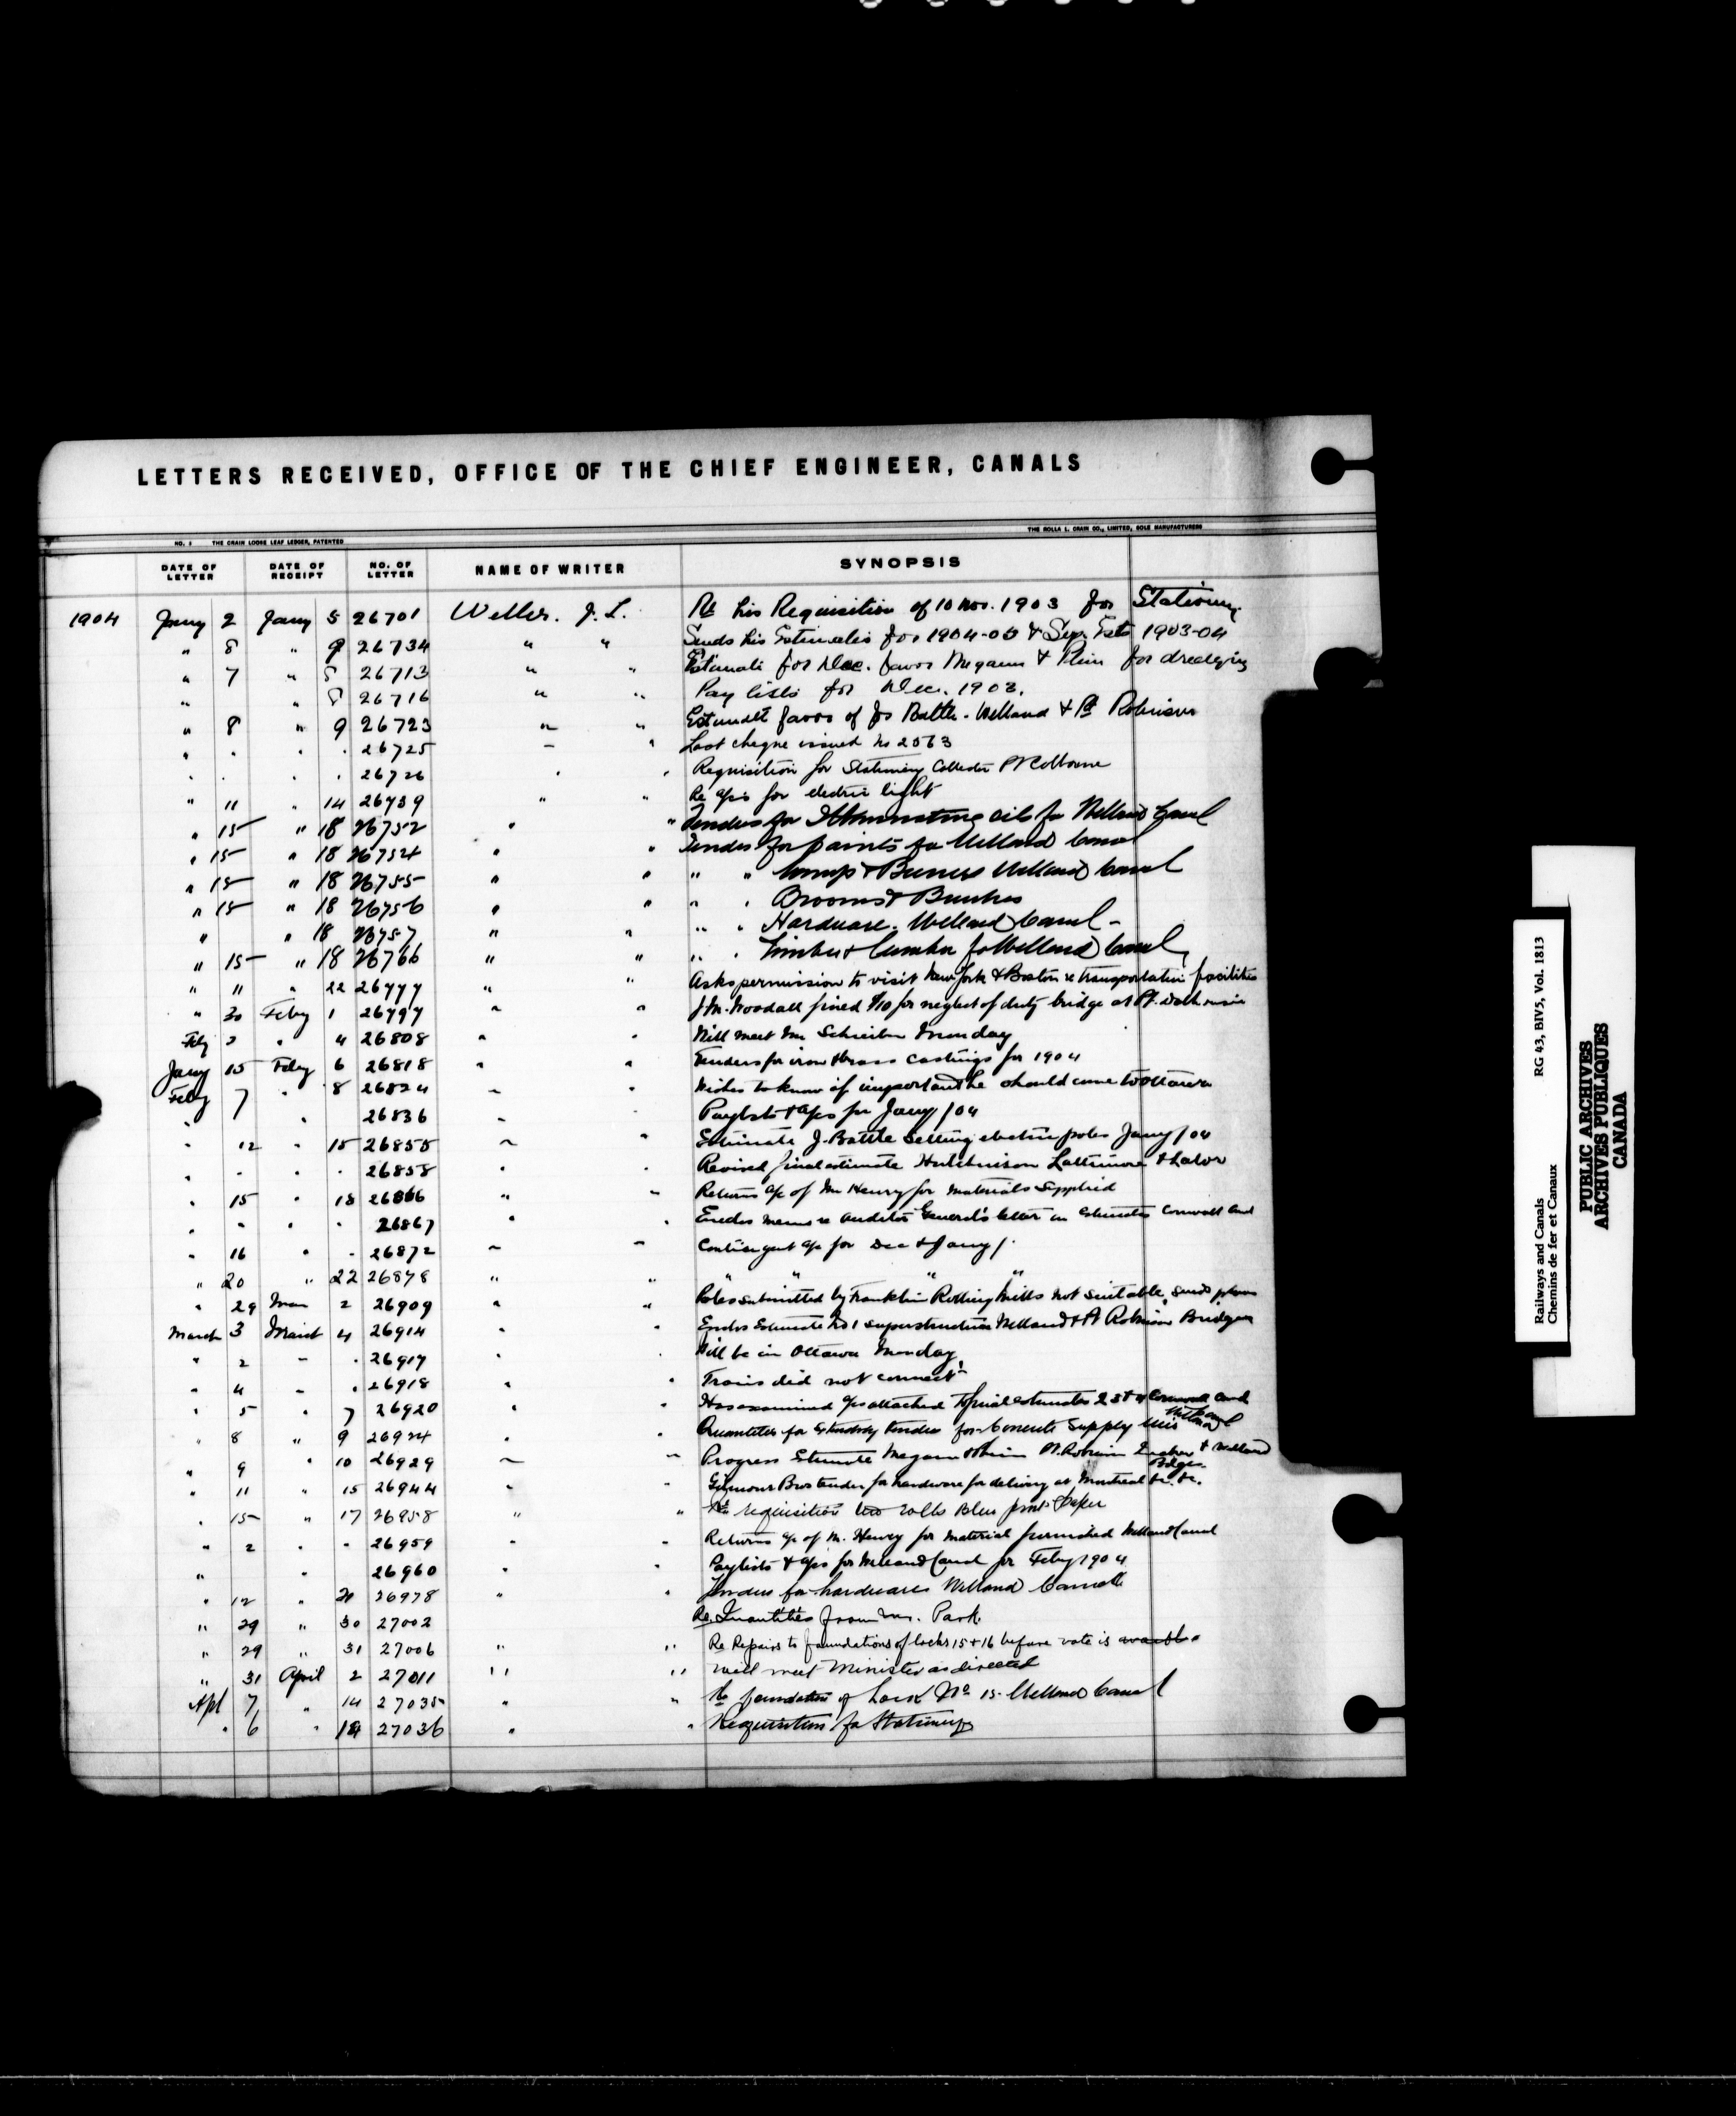 LETTERS RECEIVED, OFFICE OF THE CHIEF ENGINEER, CANALS
NO. 3 THE CRAIN LOOSE LEAF LEDGER, PATENTED THE ROLLA L. CRAIN CO., LIMITED, SOLE MANUFACTURERS
DATE OF LETTER DATE OF RECEIPT NO. OF LETTER NAME OF WRITER SYNOPSIS
1904 Jany 2 Jany 5 26701 Weller. J. L. Re his Requisition of 10 Nov. 1903 for Stationery
" 8 " 9 26734 " " Sends his Estimates for 1904-05 & Sup. Ests 1903-04
" 7 " 8 26713 " " Estimate for Dec. favor Magann & Phin for dredging
" " 8 26716 " " Pay lists for Dec. 1903.
" 8 " 9 26723 " " Estimate favor of Jos Battle. Welland & Pt Robinson
" " " " 26725 " " Last cheque issued No 2563
" " " " 26726 " " Requisition for Stationery Collector Pt Colborne
" 11 " 14 26739 " " Re a/cs for electric light
" 15 " 18 26752 " " Tenders for Illuminating oils for Welland Canal
" 15 " 18 26754 " " Tender for paints for Welland Canal
" 15 " 18 26755 " " " " Lamps & Burners Welland Canal
" 15 " 18 26756 " " " " Brooms & Brushes
" " 18 26757 " " " " Hardware. Welland Canal -
" 15 " 18 26766 " " " " Timber & Lumber for Welland Canal
" 11 " 22 26777 " " Asks permission to visit New York & Boston re transportation facilities
" 30 Feby 1 26797 " " J.M. Woodall fined $10 for neglect of duty bridge at Pt. Dalhousie
Feby 2 " 4 26808 " " Will meet Mr Schreiber Monday
Jany 15 Feby 6 26818 " " Tenders for iron & brass castings for 1904
Feby 7 " 8 26824 " " Wishes to know if important he should come to Ottawa
" " 26836 " " Paylists & a/cs for Jany/04
" 12 " 15 26855 " " Estimate J. Battle setting electric poles Jany/04
" " " " 26858 " " Revised final estimate Hutchinson Lattimore & Lalor
" 15 " 18 26866 " " Returns a/c of Mr Henry for materials supplied
" " " " 26867 " " Encloses memo re Auditor General's letter on estimates Cornwall Canal
" 16 " " 26872 " " Contingent a/c for Dec & Jany/.
" 20 " 22 26878 " " " " " "
" 29 Mar 2 26909 " " Poles submitted by Franklin Rolling Mills not suitable, sends plans
March 3 March 4 26914 " " Encloses Estimate No 1 superstructure Welland & Pt Robinson Bridges
" 2 " " 26917 " " Will be in Ottawa Monday
" 4 " " 26918 " " Trains did not connect
" 5 " 7 26920 " " Has examined a/cs attached to final estimates Cornwall Canal
" 8 " 9 26924 " " Quantities for tender for Concrete Supply Weir Welland Canal
" 9 " 10 26929 " " Progress Estimate Magann & Phin Pt. Robinson & Welland Bdges
" 11 " 15 26944 " " Gilmour Bros tender for hardware for delivery at Montreal &c. &c.
" 15 " 17 26958 " " Re requisition two rolls Blue print Paper
" 2 " " 26959 " " Returns a/c of M. Henry for material furnished Welland Canal
" " 26960 " " Paylists & a/cs for Welland Canal for Feby 1904
" 12 " 21 26978 " " Tenders for hardware Welland Canal
" 29 " 30 27002 Re. Quantities from Mr. Park.
" 29 " 31 27006 " " Re Repairs to foundations of locks 15 & 16 before vote is available
" 31 April 2 27011 " " Will meet Minister as directed
Apl 7 " 14 27035 " " Re foundation of Lock No 15. Welland Canal
" 6 " 14 27036 " " Requisition for Stationery
Railways and Canals RG 43, BIV5, Vol. 1813
Chemins de fer et Canaux
PUBLIC ARCHIVES
ARCHIVES PUBLIQUES
CANADA